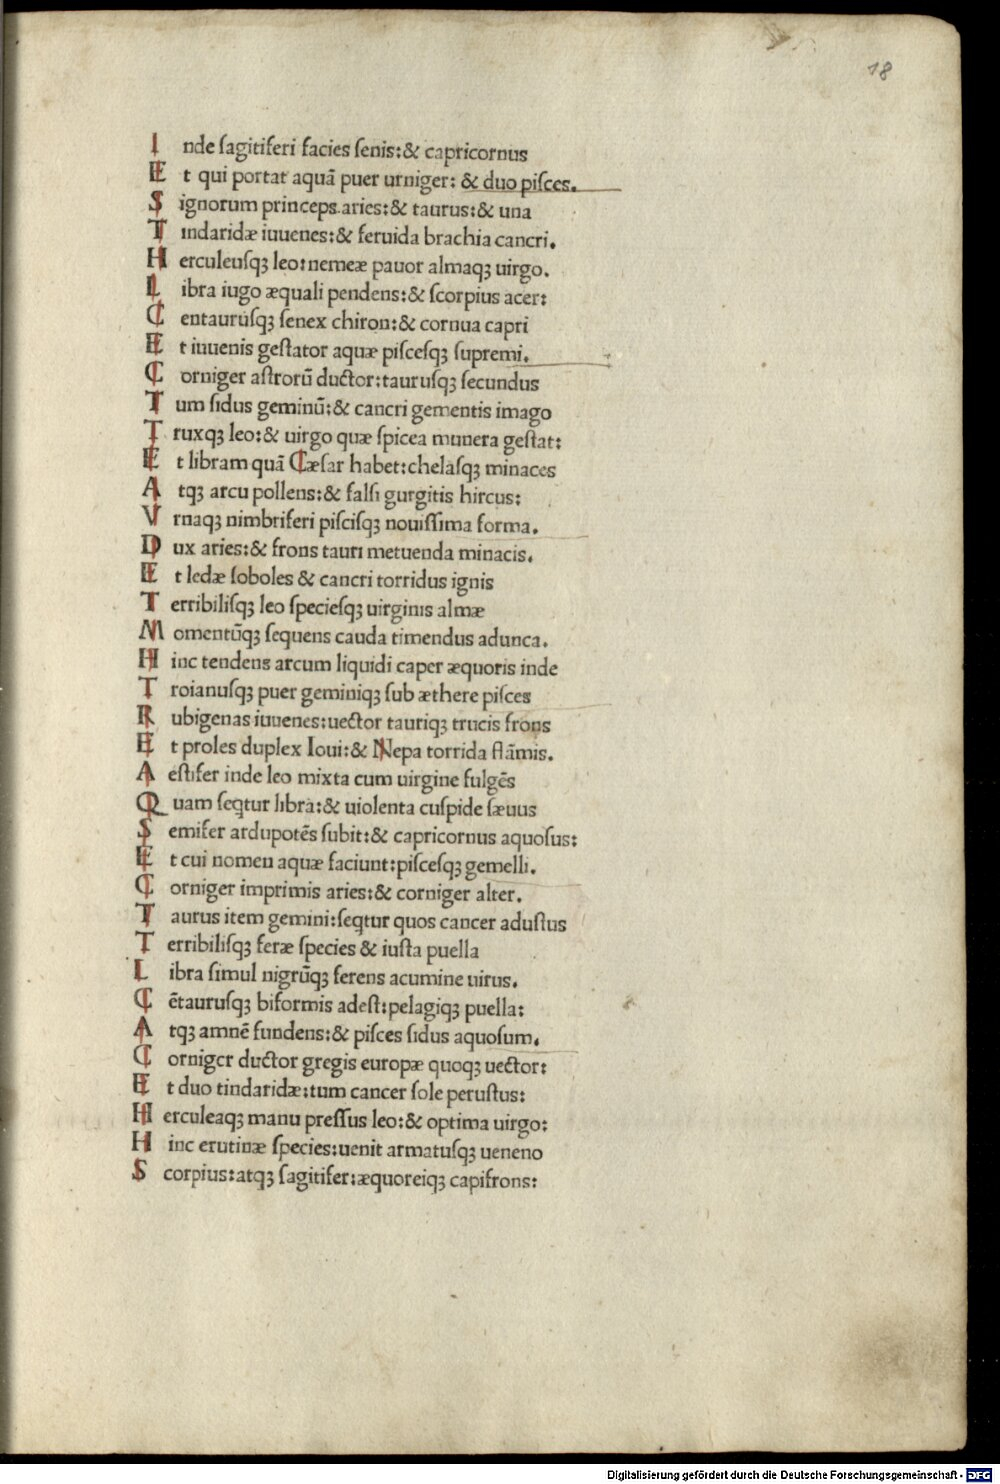 18
I nde ſagitiferi facies ſenis:& capricornus
E t qui portat aquā puer urniger: & duo piſces.
S ignorum princeps aries:& taurus:& una
T indaridæ iuuenes:& feruida brachia cancri.
H erculeuſqꝫ leo:nemeæ pauor almaqꝫ uirgo.
L ibra iugo æquali pendens:& ſcorpius acer:
C entauruſqꝫ ſenex chiron:& cornua capri
E t iuuenis geſtator aquæ piſceſqꝫ ſupremi.
C orniger aſtrorū ductor:tauruſqꝫ ſecundus
T um ſidus geminū:& cancri gementis imago
T ruxqꝫ leo:& uirgo quæ ſpicea munera geſtat:
E t libram quā Cæſar habet:chelaſqꝫ minaces
A tqꝫ arcu pollens:& falſi gurgitis hircus:
V rnaqꝫ nimbriferi piſciſqꝫ nouiſſima forma.
D ux aries:& frons tauri metuenda minacis.
E t ledæ ſoboles & cancri torridus ignis
T erribiliſqꝫ leo ſpecieſqꝫ uirginis almæ
M omentūqꝫ ſequens cauda timendus adunca.
H inc tendens arcum liquidi caper æquoris inde
T roianuſqꝫ puer geminiqꝫ ſub æthere piſces
R ubigenas iuuenes:uector tauriqꝫ trucis frons
E t proles duplex Ioui:& Nepa torrida flāmis.
A eſtifer inde leo mixta cum uirgine fulgēs
Q uam ſeqtur libra:& uiolenta cuſpide ſæuus
S emifer ardupotēs ſubit:& capricornus aquoſus:
E t cui nomen aquæ faciunt:piſceſqꝫ gemelli.
C orniger imprimis aries:& corniger alter.
T aurus item gemini:ſeqtur quos cancer aduſtus
T erribiliſqꝫ feræ ſpecies & iuſta puella
L ibra ſimul nigrūqꝫ ferens acumine uirus.
C ētauruſqꝫ biformis adeſt:pelagiqꝫ puella:
A tqꝫ amnē fundens:& piſces ſidus aquoſum.
C orniger ductor gregis europæ quoqꝫ uector:
E t duo tindaridæ:tum cancer ſole peruſtus:
H erculeaqꝫ manu preſſus leo:& optima uirgo:
H inc erutinæ ſpecies:uenit armatuſqꝫ ueneno
S corpius:atqꝫ ſagitifer:æquoreiqꝫ capifrons:
Digitalisierung gefördert durch die Deutsche Forschungsgemeinschaft - DFG